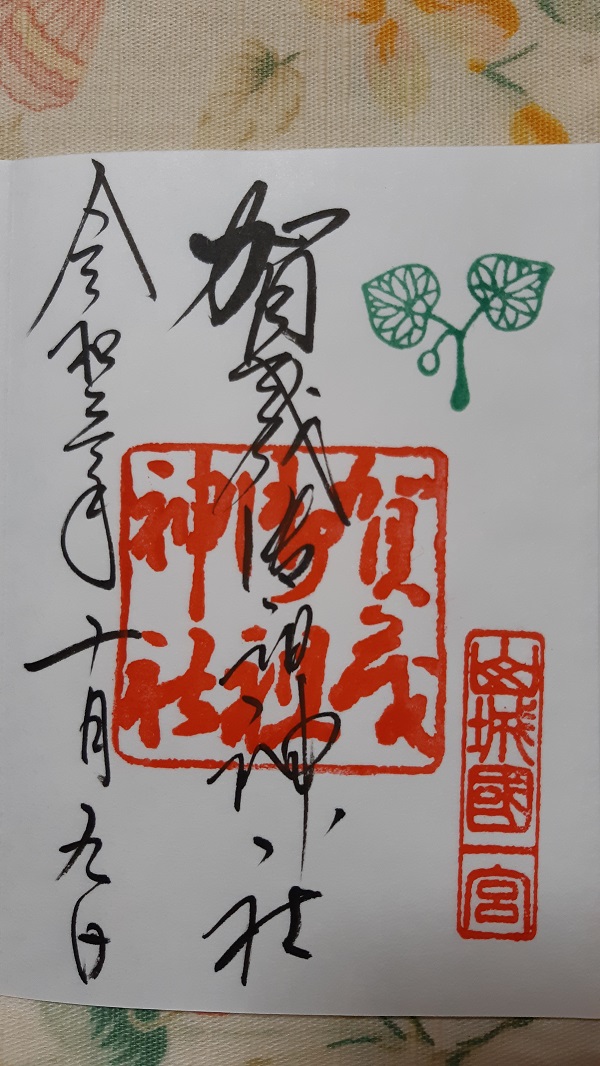 山城國一宮
賀茂御祖神社
賀茂
御祖
神社
令和三年十月九日